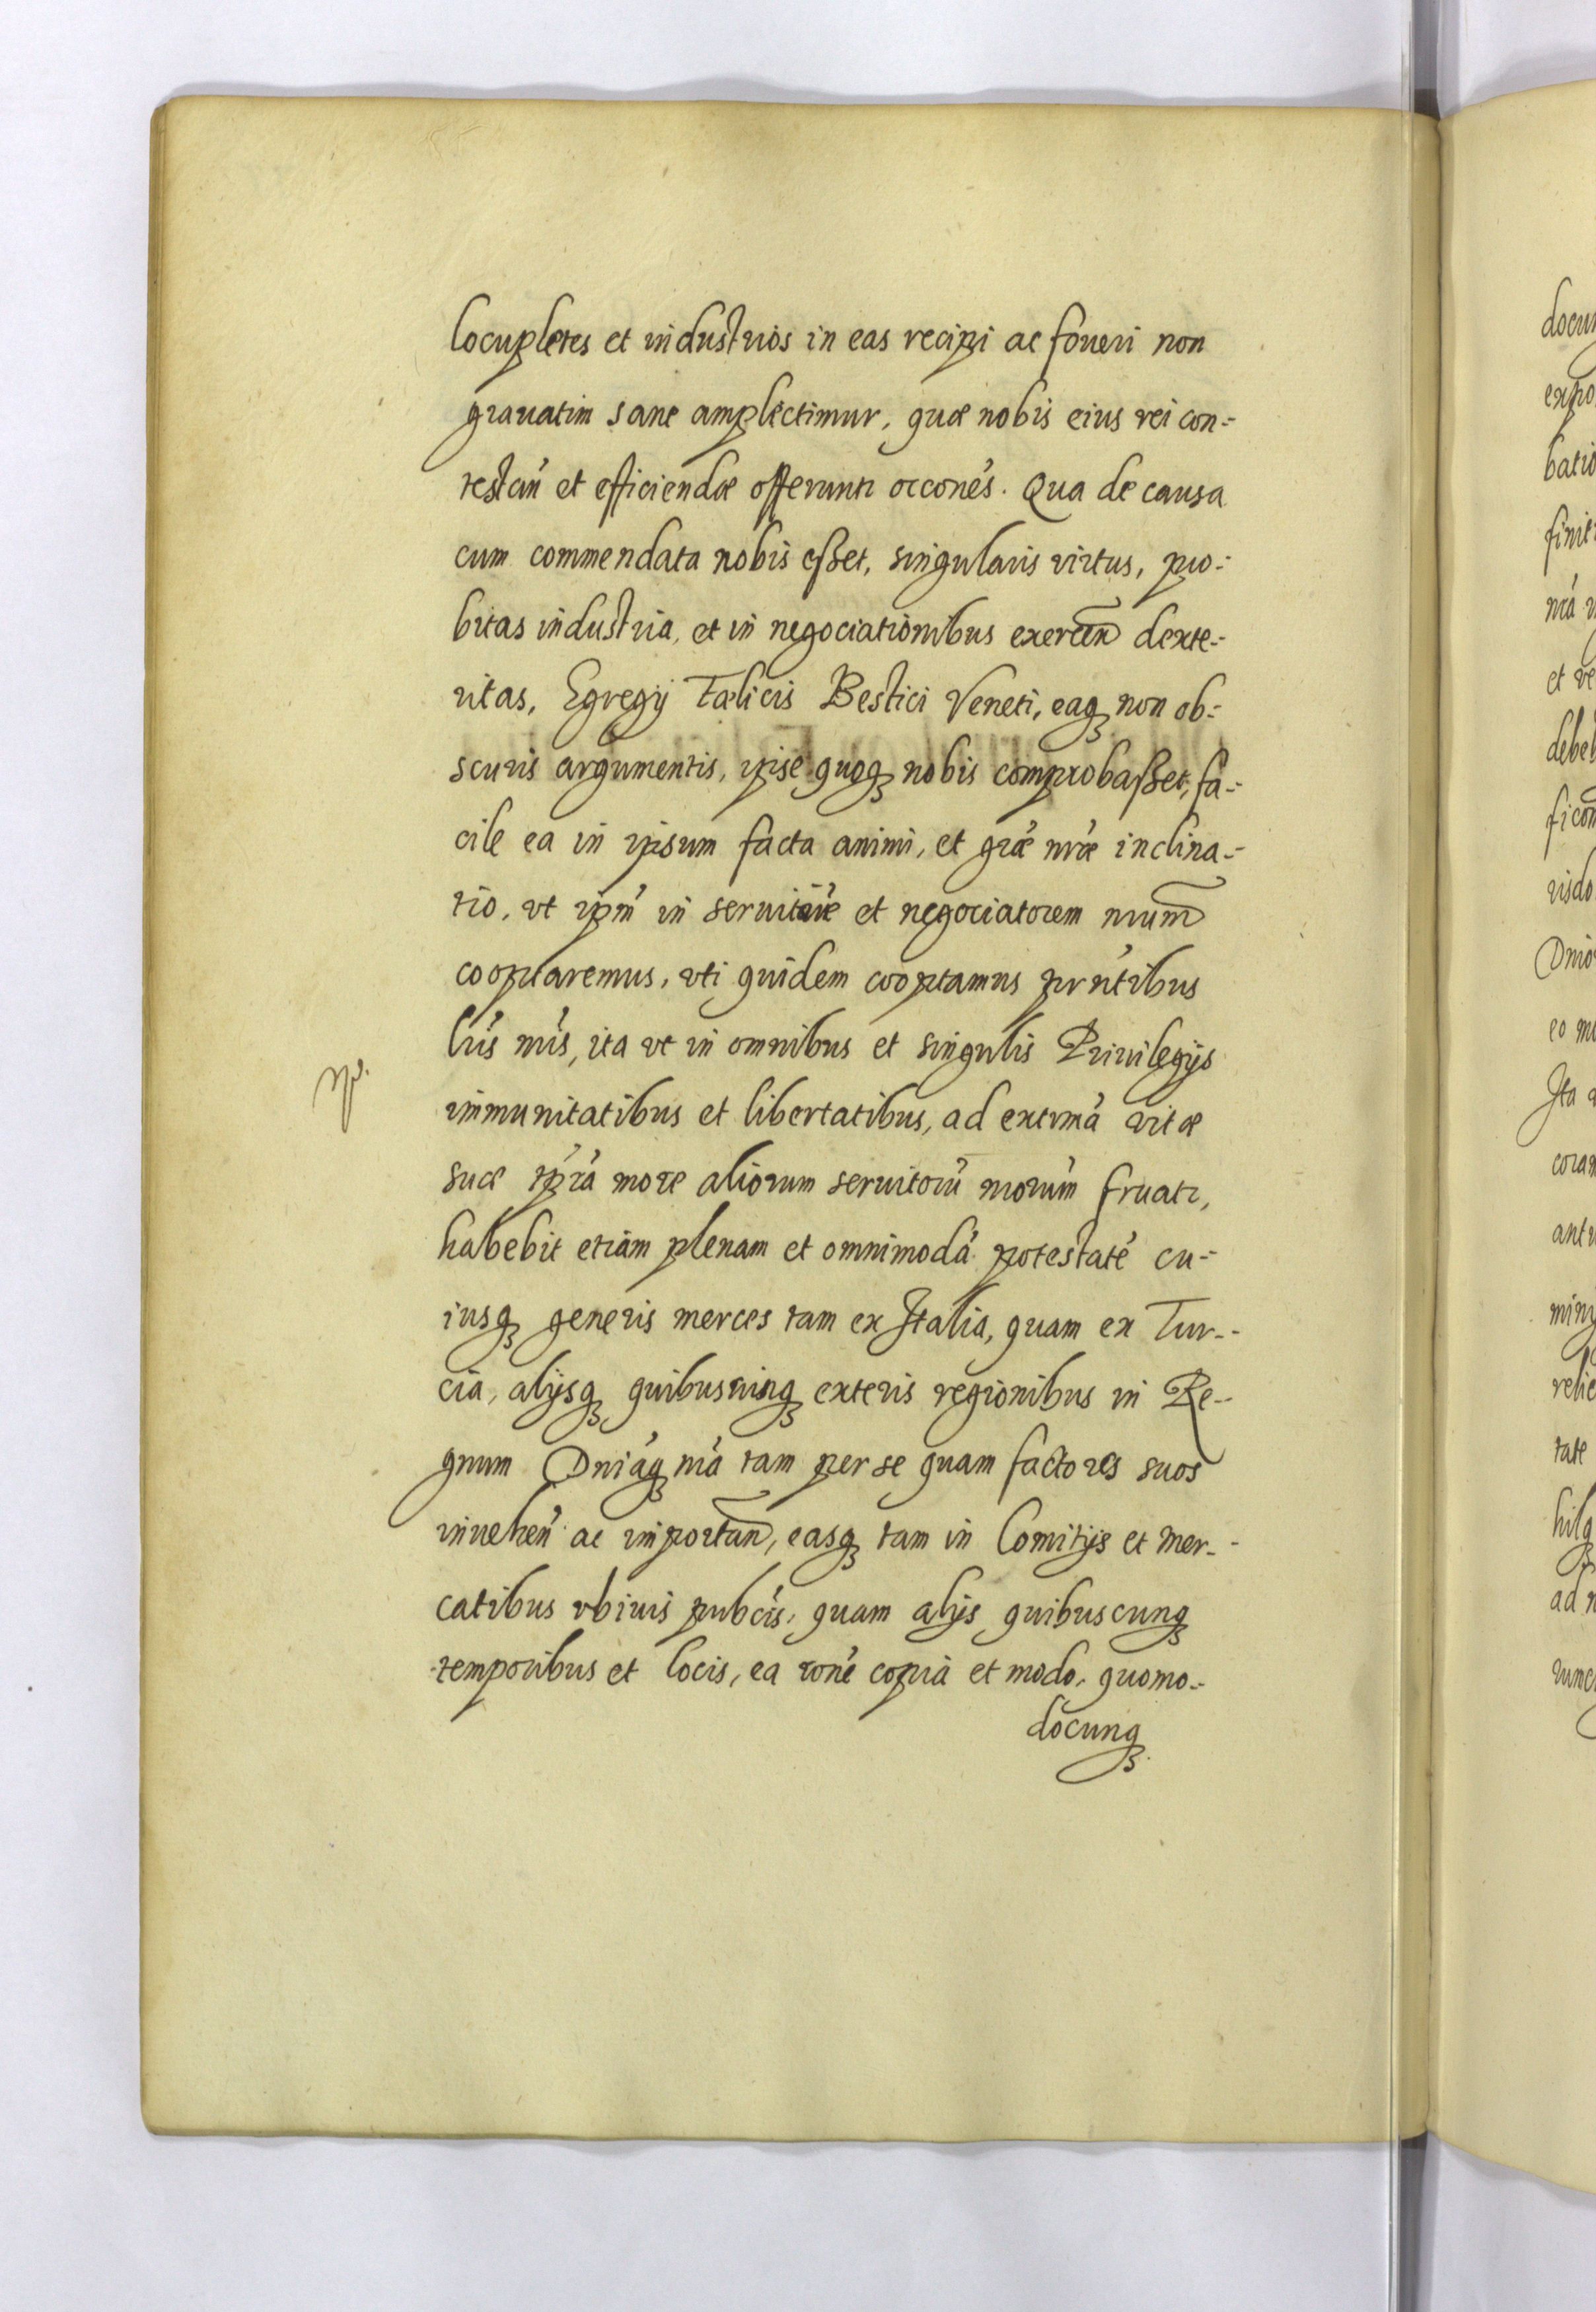 locupletes et industrios in eas recipi ac foueri non
grauatim sane amplectimur, quæ nobis eius rei con-
testań et efficiendæ offerunt occoneś. Qua de causa
cum commendata nobis eßet, singularis virtus, pro-
bitas industria, et in negociationibus exercen dexte-
ritas, Egregij Fælicis Bestici Veneti, eaq₃ non ob-
scuris argumentis, ipse quoq₃ nobis comprobaßet, fa-
cile ea in ipsum facta animi, et gráe nráe inclina-
tio, vt ipm̃ in et negociatorem nrum
cooptaremus, vti quidem cooptamus prńtibus
lrís nrís, ita vt in omnibus et singulis Priuilegijs
immunitatibus et libertatibus, ad extrmá vitæ
suæ tṕrá more aliorum seruitorú nrorúm fruatr,
habebit etiam plenam et omnimodá potestaté cu-
iusq₃ generis merces tam ex Italia, quam ex Tur-
cia, alijsq₃ quibusuisq₃ exteris regionibus in Re-
gnum Dniáq₃ nrá tam per se quam factores suos
inuehen̓ ac importan, easq₃ tam in Comitijs et mer-
catibus vbiuis pubcís, quam alijs quibuscunq₃
temporibus et locis, ea roné copia et modo, quomo-
docunq₃